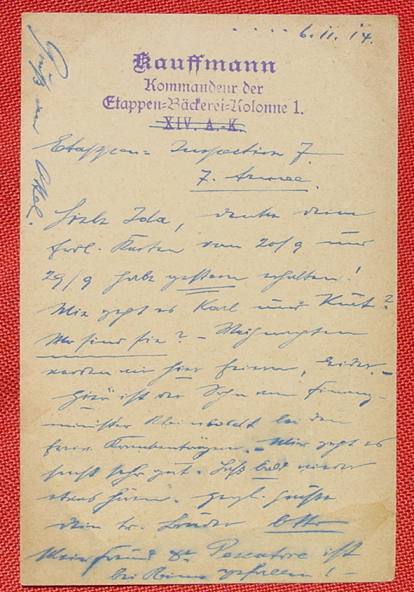 ..... 6.11.14.
Kauffmann
Kommandeur der
Etappen-Bäckerei-Kolonne 1.
XIV. A.K.
Etappen-Inspection 7
7. Armee.
Liebe Ida, danke deine
frdl. Karten vom 20/9 und
29/9 habe gestern erhalten!
Wie geht es Karl und Knut?
Wo sind sie? - Weihnachten
werden wir hier feiern, leider. -
Hier ist der Sohn vom Finanz-
minister Rheinboldt bei den
freiw. Krankenträgern. - Mir geht es
sehr gut. Laß bald wieder
etwas hören. Herzl. Grüße
dein tr. Bruder Otto
Mein Freund Dr. Pescatore ist
bei Reims gefallen! -
Gruß an